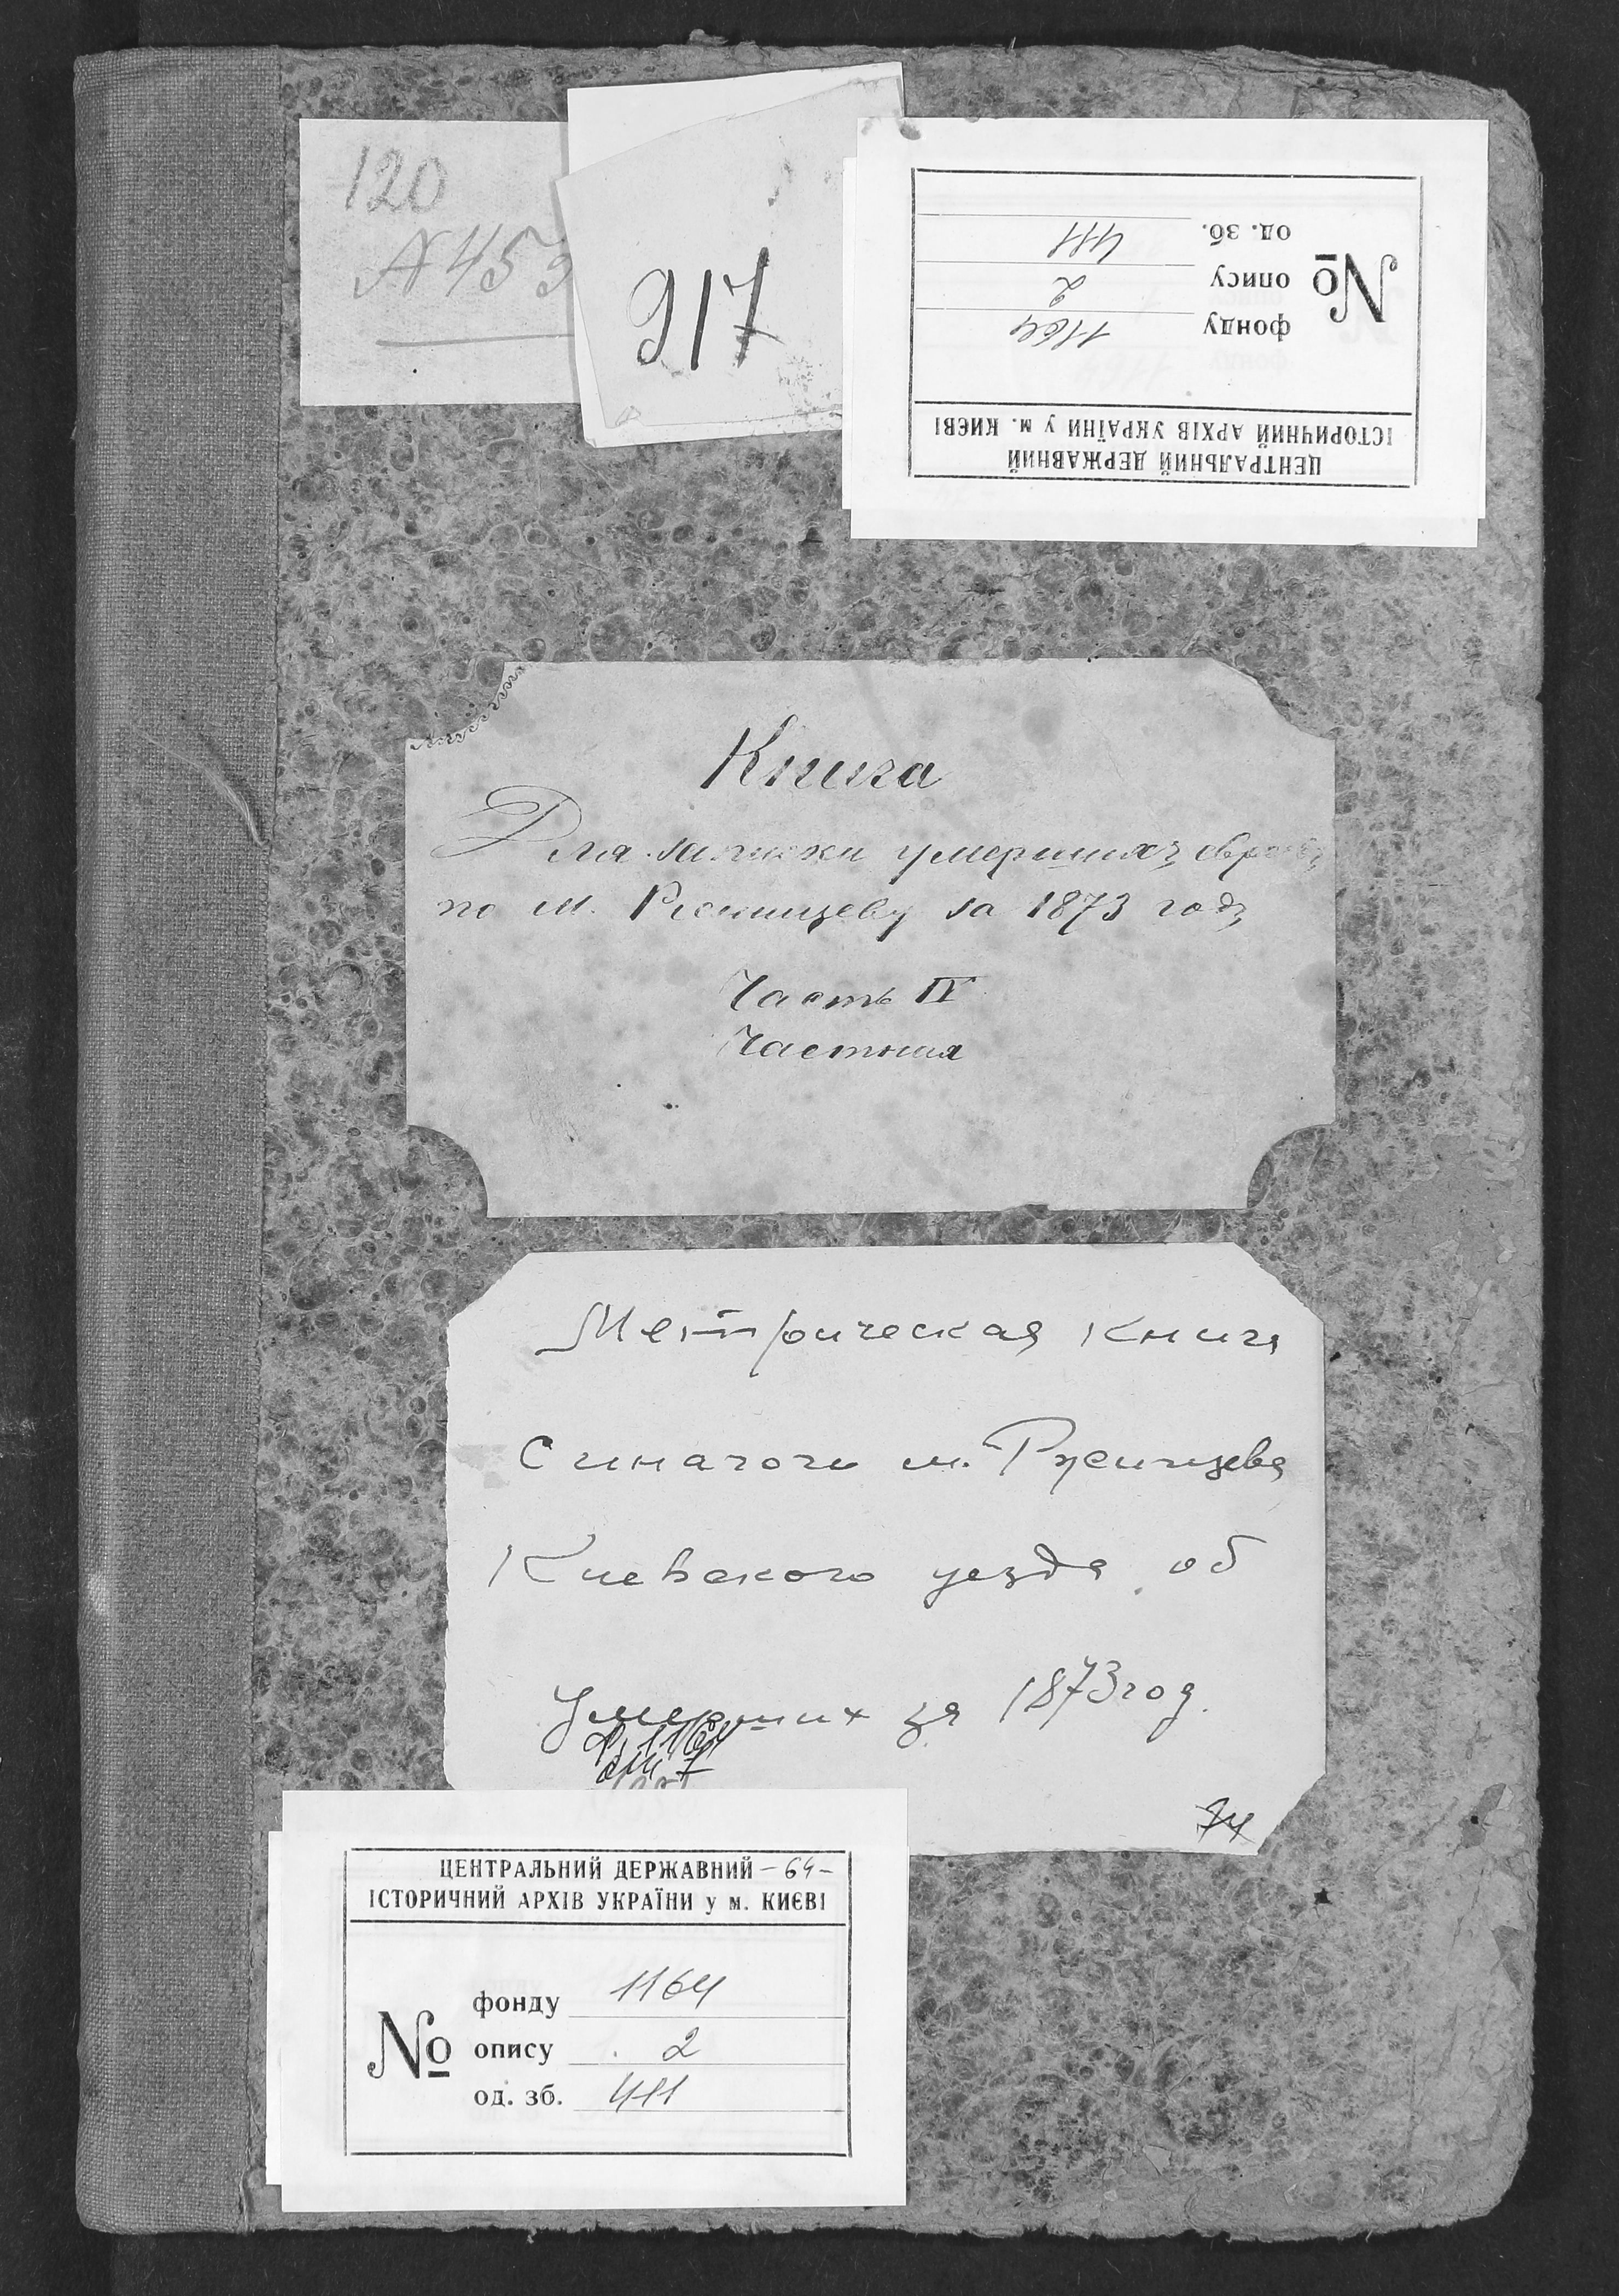 120
№ 453
917
ЦЕНТРАЛЬНИЙ ДЕРЖАВНИЙ
ІСТОРИЧНИЙ АРХІВ УКРАЇНИ у м. КИЄВІ
№
фонду 1164
опису 2
од. зб. 411
Книга
Для записки умершихъ евреевъ
по м. Рженищеву за 1873 годъ
Часть IV
Частная
Метрическая книга
Синагоги м. Ржищева
Киевского уезда об
Умерших за 1873 год.
ф. 1164
оп 1
74
ЦЕНТРАЛЬНИЙ ДЕРЖАВНИЙ -64-
ІСТОРИЧНИЙ АРХІВ УКРАЇНИ у м. КИЄВІ
№
фонду 1164
опису 2
од. зб. 411